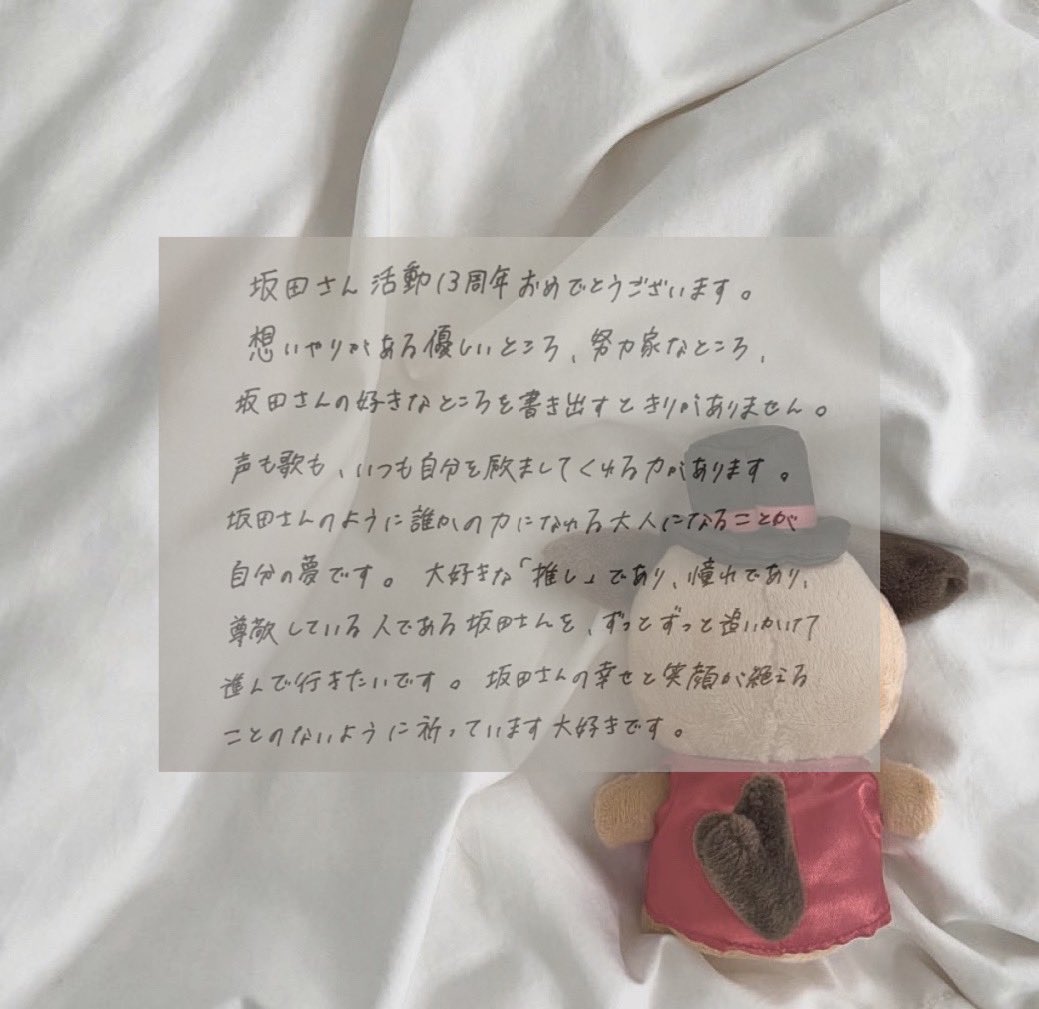 坂田さん 活動13周年おめでとうございます。
想いやりがある優しいところ、努力家なところ、
坂田さんの好きなところを書き出すときりがありません。
声も歌も、いつも自分を励ましてくれる力があります。
坂田さんのように誰かの力になれる大人になることが
自分の夢です。 大好きな「推し」であり、憧れであり、
尊敬している人である坂田さんを、ずっとずっと追いかけて
進んで行きたいです。 坂田さんの幸せと笑顔が絶える
ことのないように祈っています大好きです。